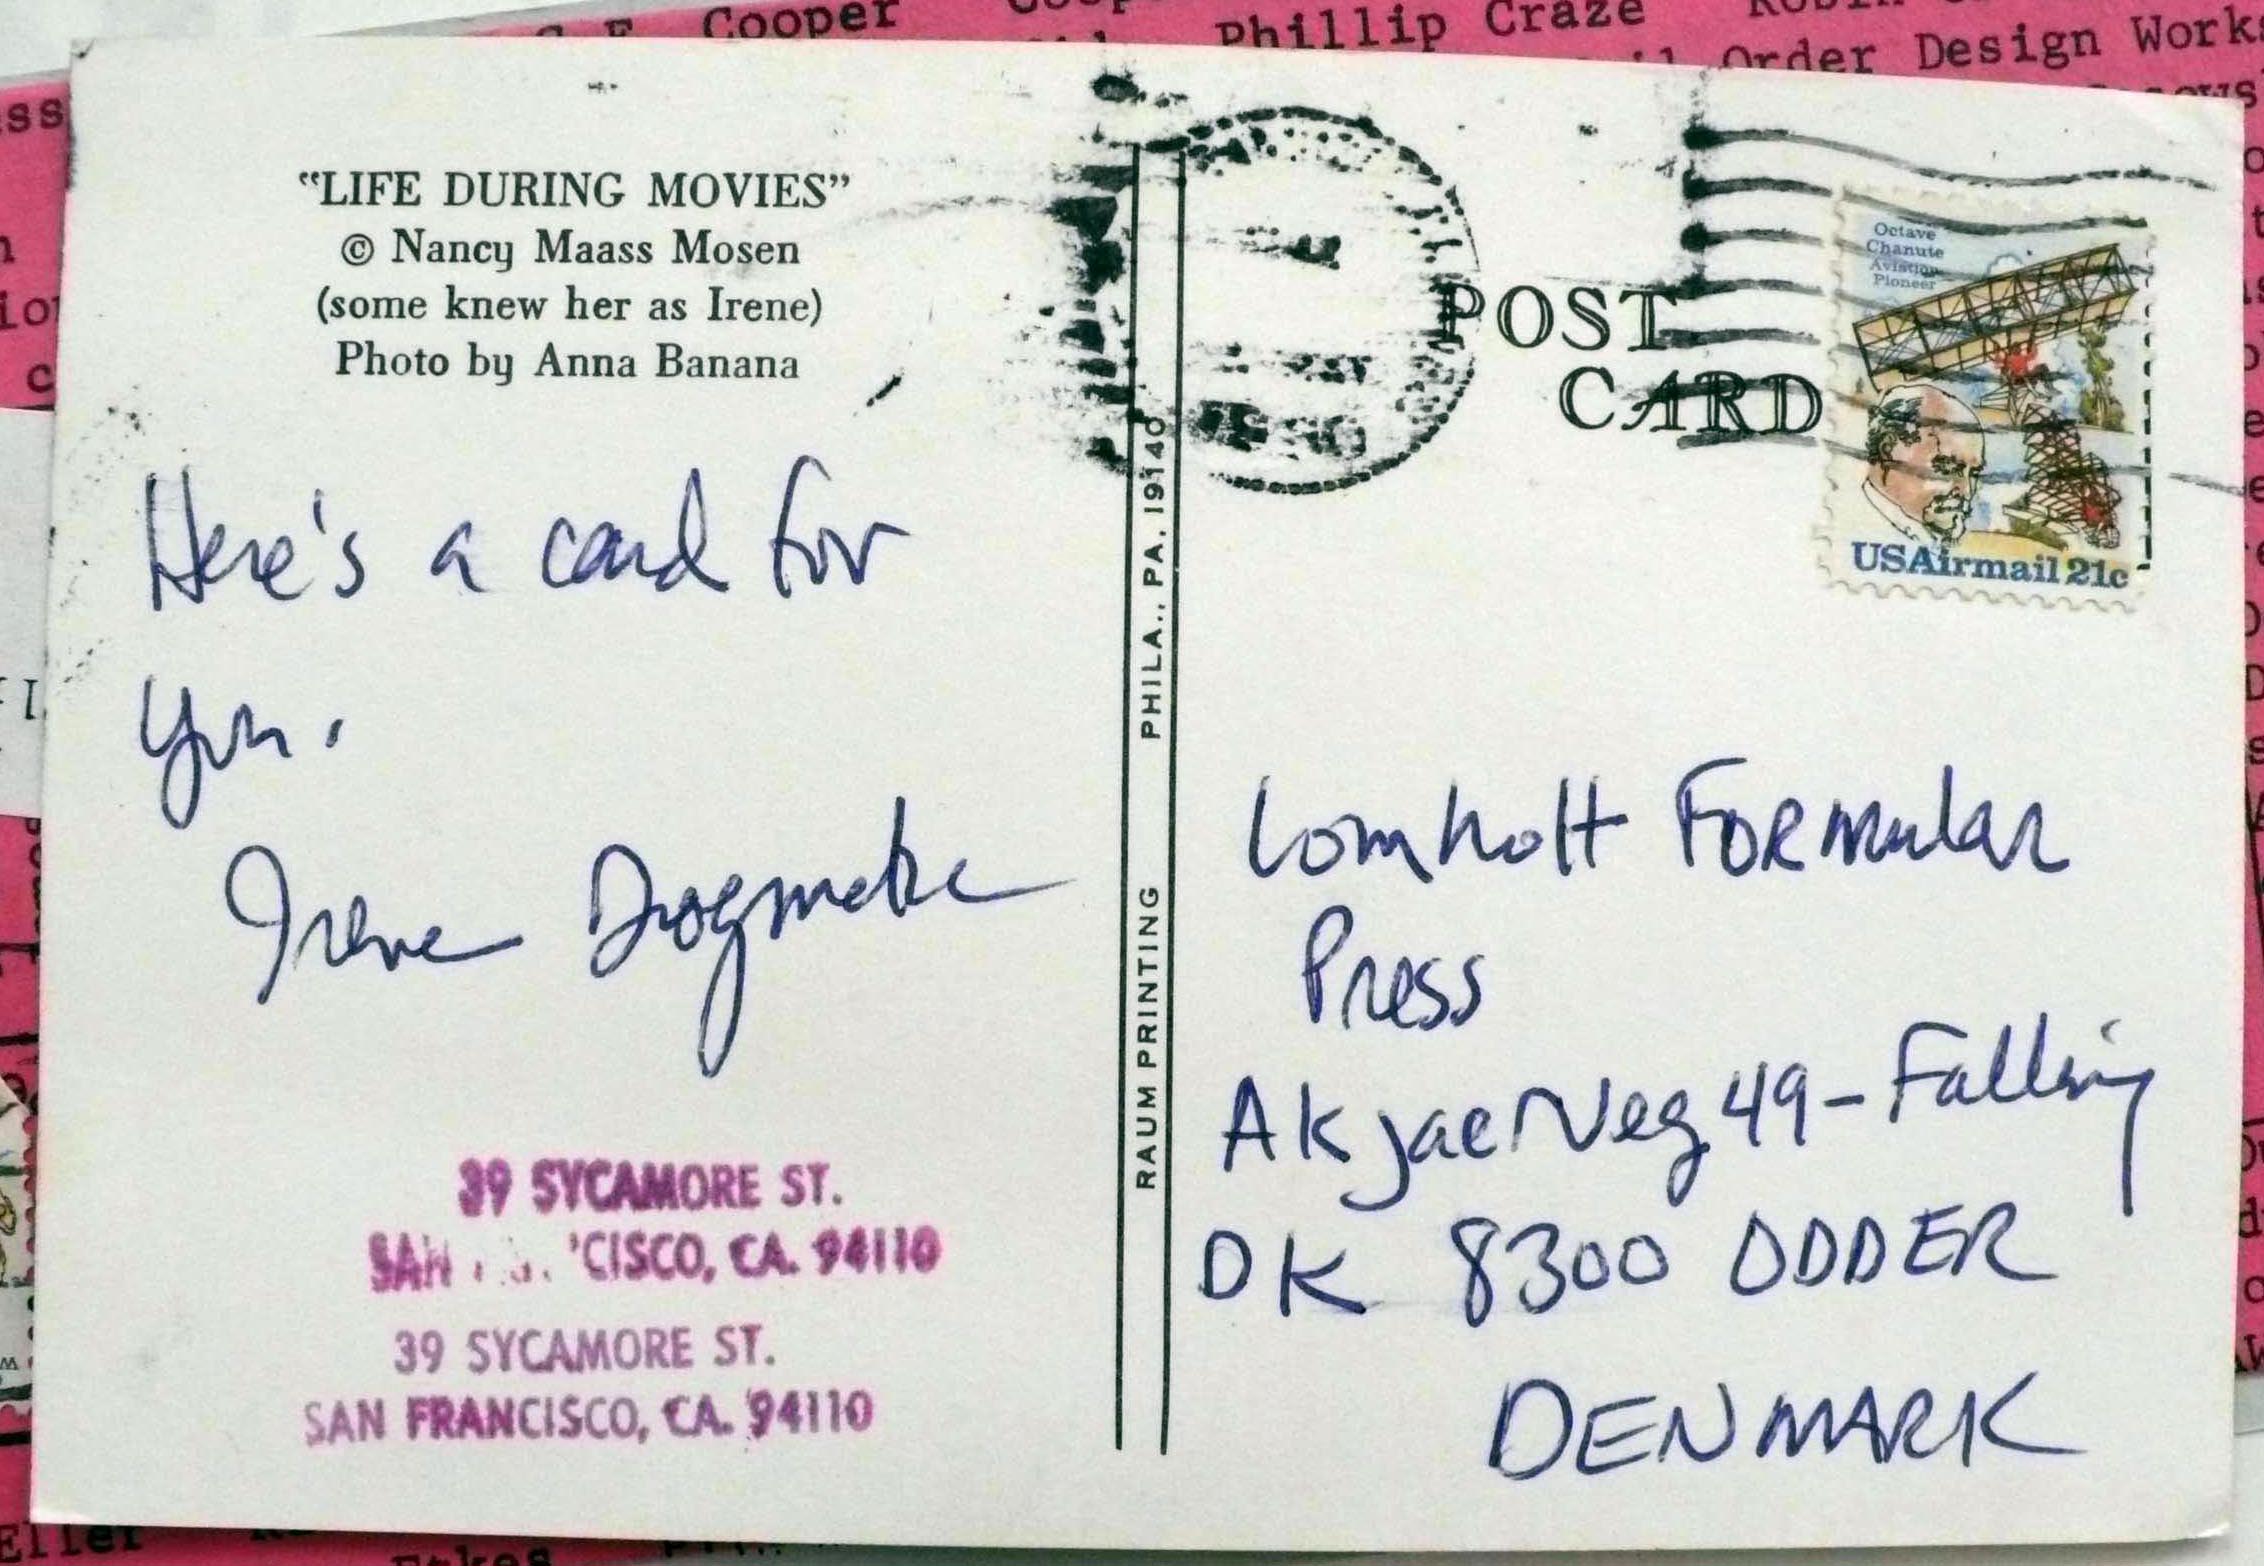 Cooper
Phillip Craze
Order Design Works
"LIFE DURING MOVIES"
© Nancy Maass Mosen
(some knew her as Irene)
Photo by Anna Banana
Here's a card for
you.
Irene Dogmatic
39 SYCAMORE ST.
SAN CISCO, CA. 94110
39 SYCAMORE ST.
SAN FRANCISCO, CA. 94110
RAUM PRINTING PHILA., PA. 19140
POST
CARD
Octave
Chanute
Aviation
Pioneer
USAirmail 21c
Lomholt Formular
Press
AkjaerVeg 49 - Falling
DK 8300 ODDER
DENMARK
Eller